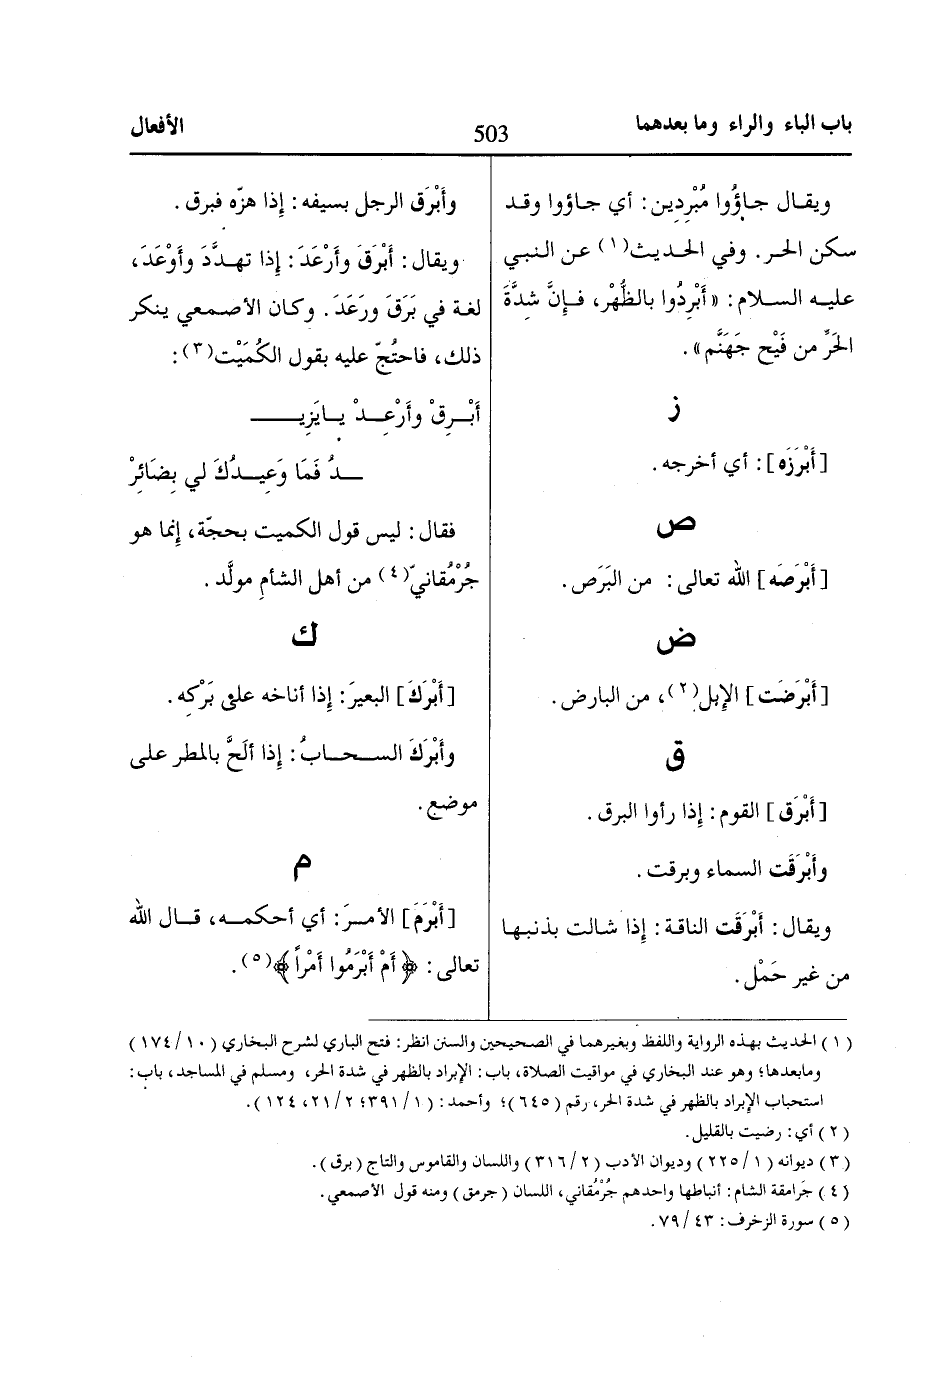 باب الباء والراء وما بعدهما
503
الأفعال
ويقال جاؤُوا مُبْرِدِين: أي جاؤوا وقد
سكن الحر. وفي الحديث(١) عن النبي
عليه السلام: «أَبْرِدُوا بالظُّهْر، فإنَّ شدَّةَ
الحَرِّ من فَيْح جَهَنَّم».
ز
[أَبْرَزَه]: أي أخرجه.
ص
[أَبْرَصَه] الله تعالى: من البَرَص.
ض
[أَبْرَضَت] الإبل(٢)، من البارض.
ق
[أَبْرَق] القوم: إذا رأوا البرق.
وأَبْرَقَت السماء وبرقت.
ويقال: أَبْرَقَت الناقة: إذا شالت بذنبها
من غير حَمْل.
وأَبْرَق الرجل بسيفه: إذا هزّه فبرق.
ويقال: أَبْرَقَ وأَرْعَدَ: إذا تهدَّدَ وأَوْعَدَ،
لغة في بَرَقَ ورَعَدَ. وكان الأصمعي ينكر
ذلك، فاحتُجّ عليه بقول الكُمَيْت(٣):
أَبْرِقْ وأَرْعِدْ يا يَزِيـ
ـدُ فَمَا وَعِيدُكَ لي بِضَائِرْ
فقال: ليس قول الكميت بحجّة، إنما هو
جُرْمُقانيّ(٤) من أهل الشأمِ مولَّد.
ك
[أَبْرَكَ] البعيرَ: إذا أناخه على بَرْكِه.
وأَبْرَكَ السحابُ: إذا ألَحَّ بالمطر على
موضع.
م
[أَبْرَمَ] الأمرَ: أي أحكمه، قال الله
تعالى: ﴿أَمْ أَبْرَمُوا أَمْراً﴾(٥).
(١) الحديث بهذه الرواية واللفظ وبغيرهما في الصحيحين والسنن انظر: فتح الباري لشرح البخاري (١٠/ ١٧٤)
ومابعدها؛ وهو عند البخاري في مواقيت الصلاة، باب: الإبراد بالظهر في شدة الحر، ومسلم في المساجد، باب:
استحباب الإبراد بالظهر في شدة الحر، رقم (٦٤٥)؛ وأحمد: (١/ ٣٩١؛ ٢/ ٢١، ١٢٤).
(٢) أي: رضيت بالقليل.
(٣) ديوانه (١/ ٢٢٥) وديوان الأدب (٢/ ٣١٦) واللسان والقاموس والتاج (برق).
(٤) جَرامقة الشام: أنباطها واحدهم جُرْمُقاني، اللسان (جرمق) ومنه قول الأصمعي.
(٥) سورة الزخرف: ٤٣/ ٧٩.